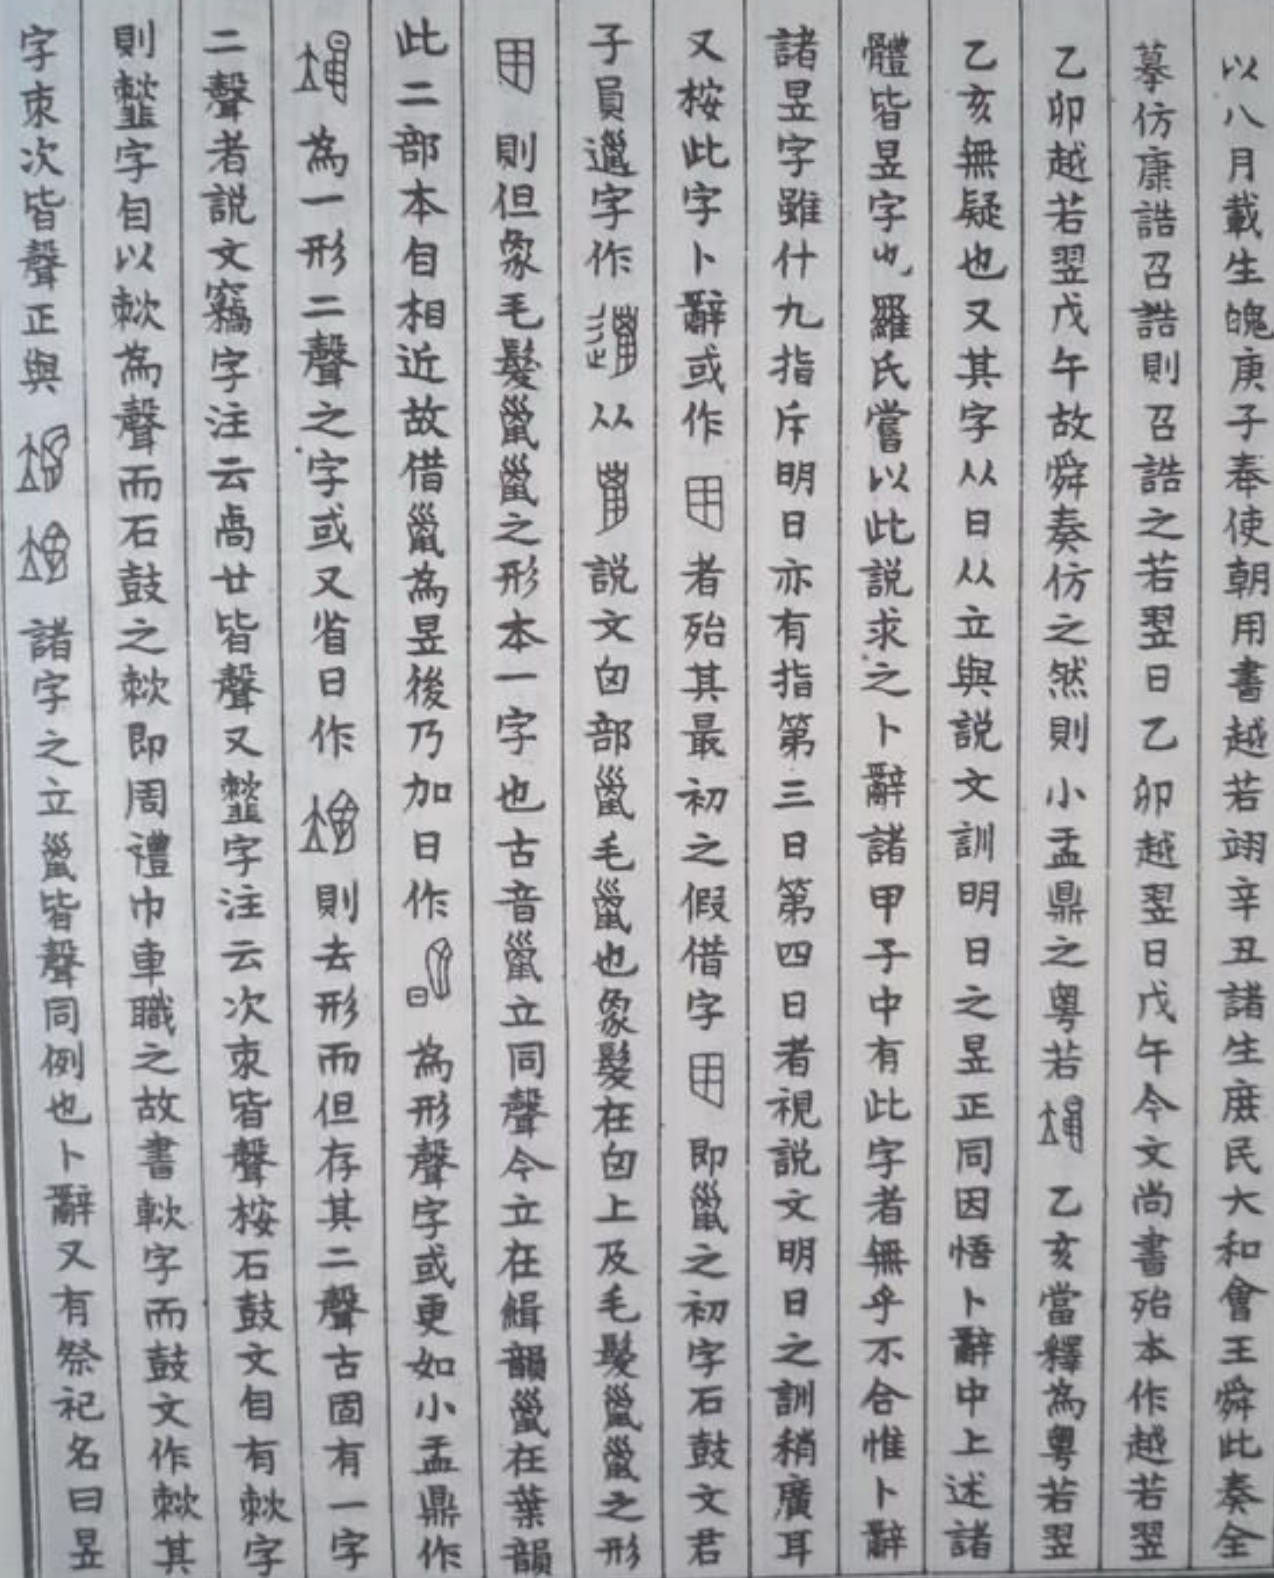 以八月載生魄庚子奉使朝用書越若翊辛丑諸生庶民大和會王舜此奏全
摹仿康誥召誥則召誥之若翌日乙卯越翌日戊午今文尚書殆本作越若翌
乙卯越若翌戊午故舜奏仿之然則小盂鼎之粵若乙亥當釋為粵若翌
乙亥無疑也又其字从日从立與說文訓明日之昱正同因悟卜辭中上述諸
體皆昱字也羅氏嘗以此說求之卜辭諸甲子中有此字者無乎不合惟卜辭
諸昱字雖什九指斥明日亦有指第三日第四日者視說文明日之訓稍廣耳
又桉此字卜辭或作者殆其最初之假借字即巤之初字石鼓文君
子員邋字作从說文囟部巤毛巤也象髮在囟上及毛髮巤巤之形
則但象毛髮巤巤之形本一字也古音巤立同聲今立在緝韻巤在葉韻
此二部本自相近故借巤為昱後乃加日作為形聲字或更如小盂鼎作
為一形二聲之字或又省日作則去形而但存其二聲古固有一字
二聲者說文竊字注云卨廿皆聲又䪢字注云次𠂔皆聲桉石鼓文自有𣣌字
則䪢字自以𣣌為聲而石鼓之𣣌即周禮巾車職之故書軟字而鼓文作𣣌其
字𠂔次皆聲正與諸字之立巤皆聲同例也卜辭又有祭祀名曰昱